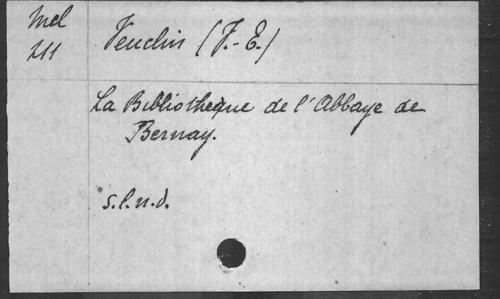 Mel
211
Veuclin (J.-E.)
La Bibliothèque de l'Abbaye de
Bernay.
s.l.n.d.